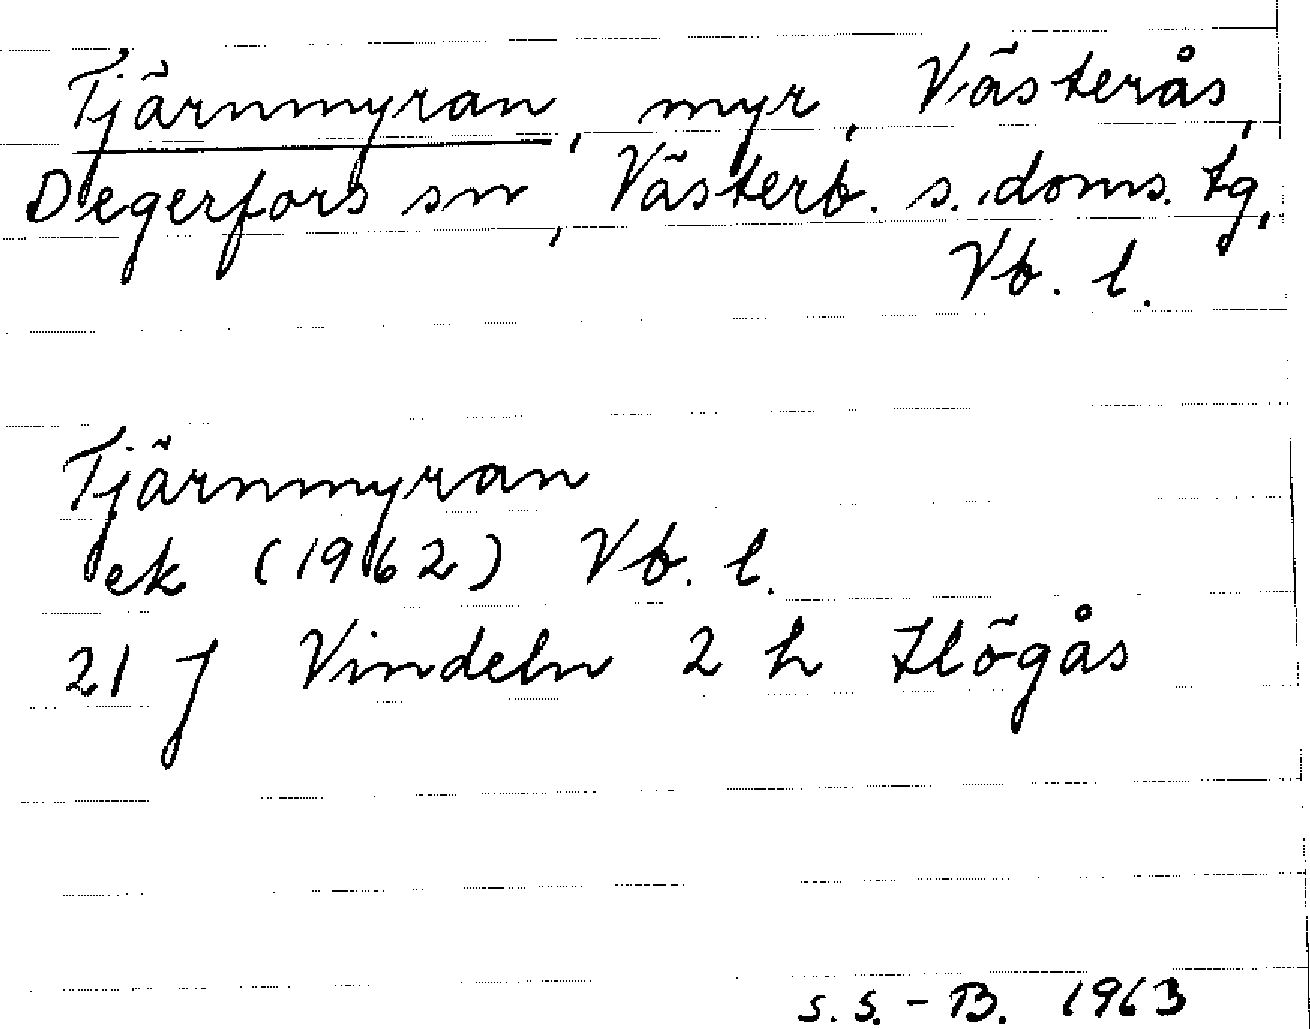 Tjärnmyran, myr, Västerås,
Degerfors sn, Västerb. s. doms. tg,
Vb. l.
Tjärnmyran
ek (1962) Vb. l.
21 J Vindeln 2 h Högås
S. S. - B. 1963